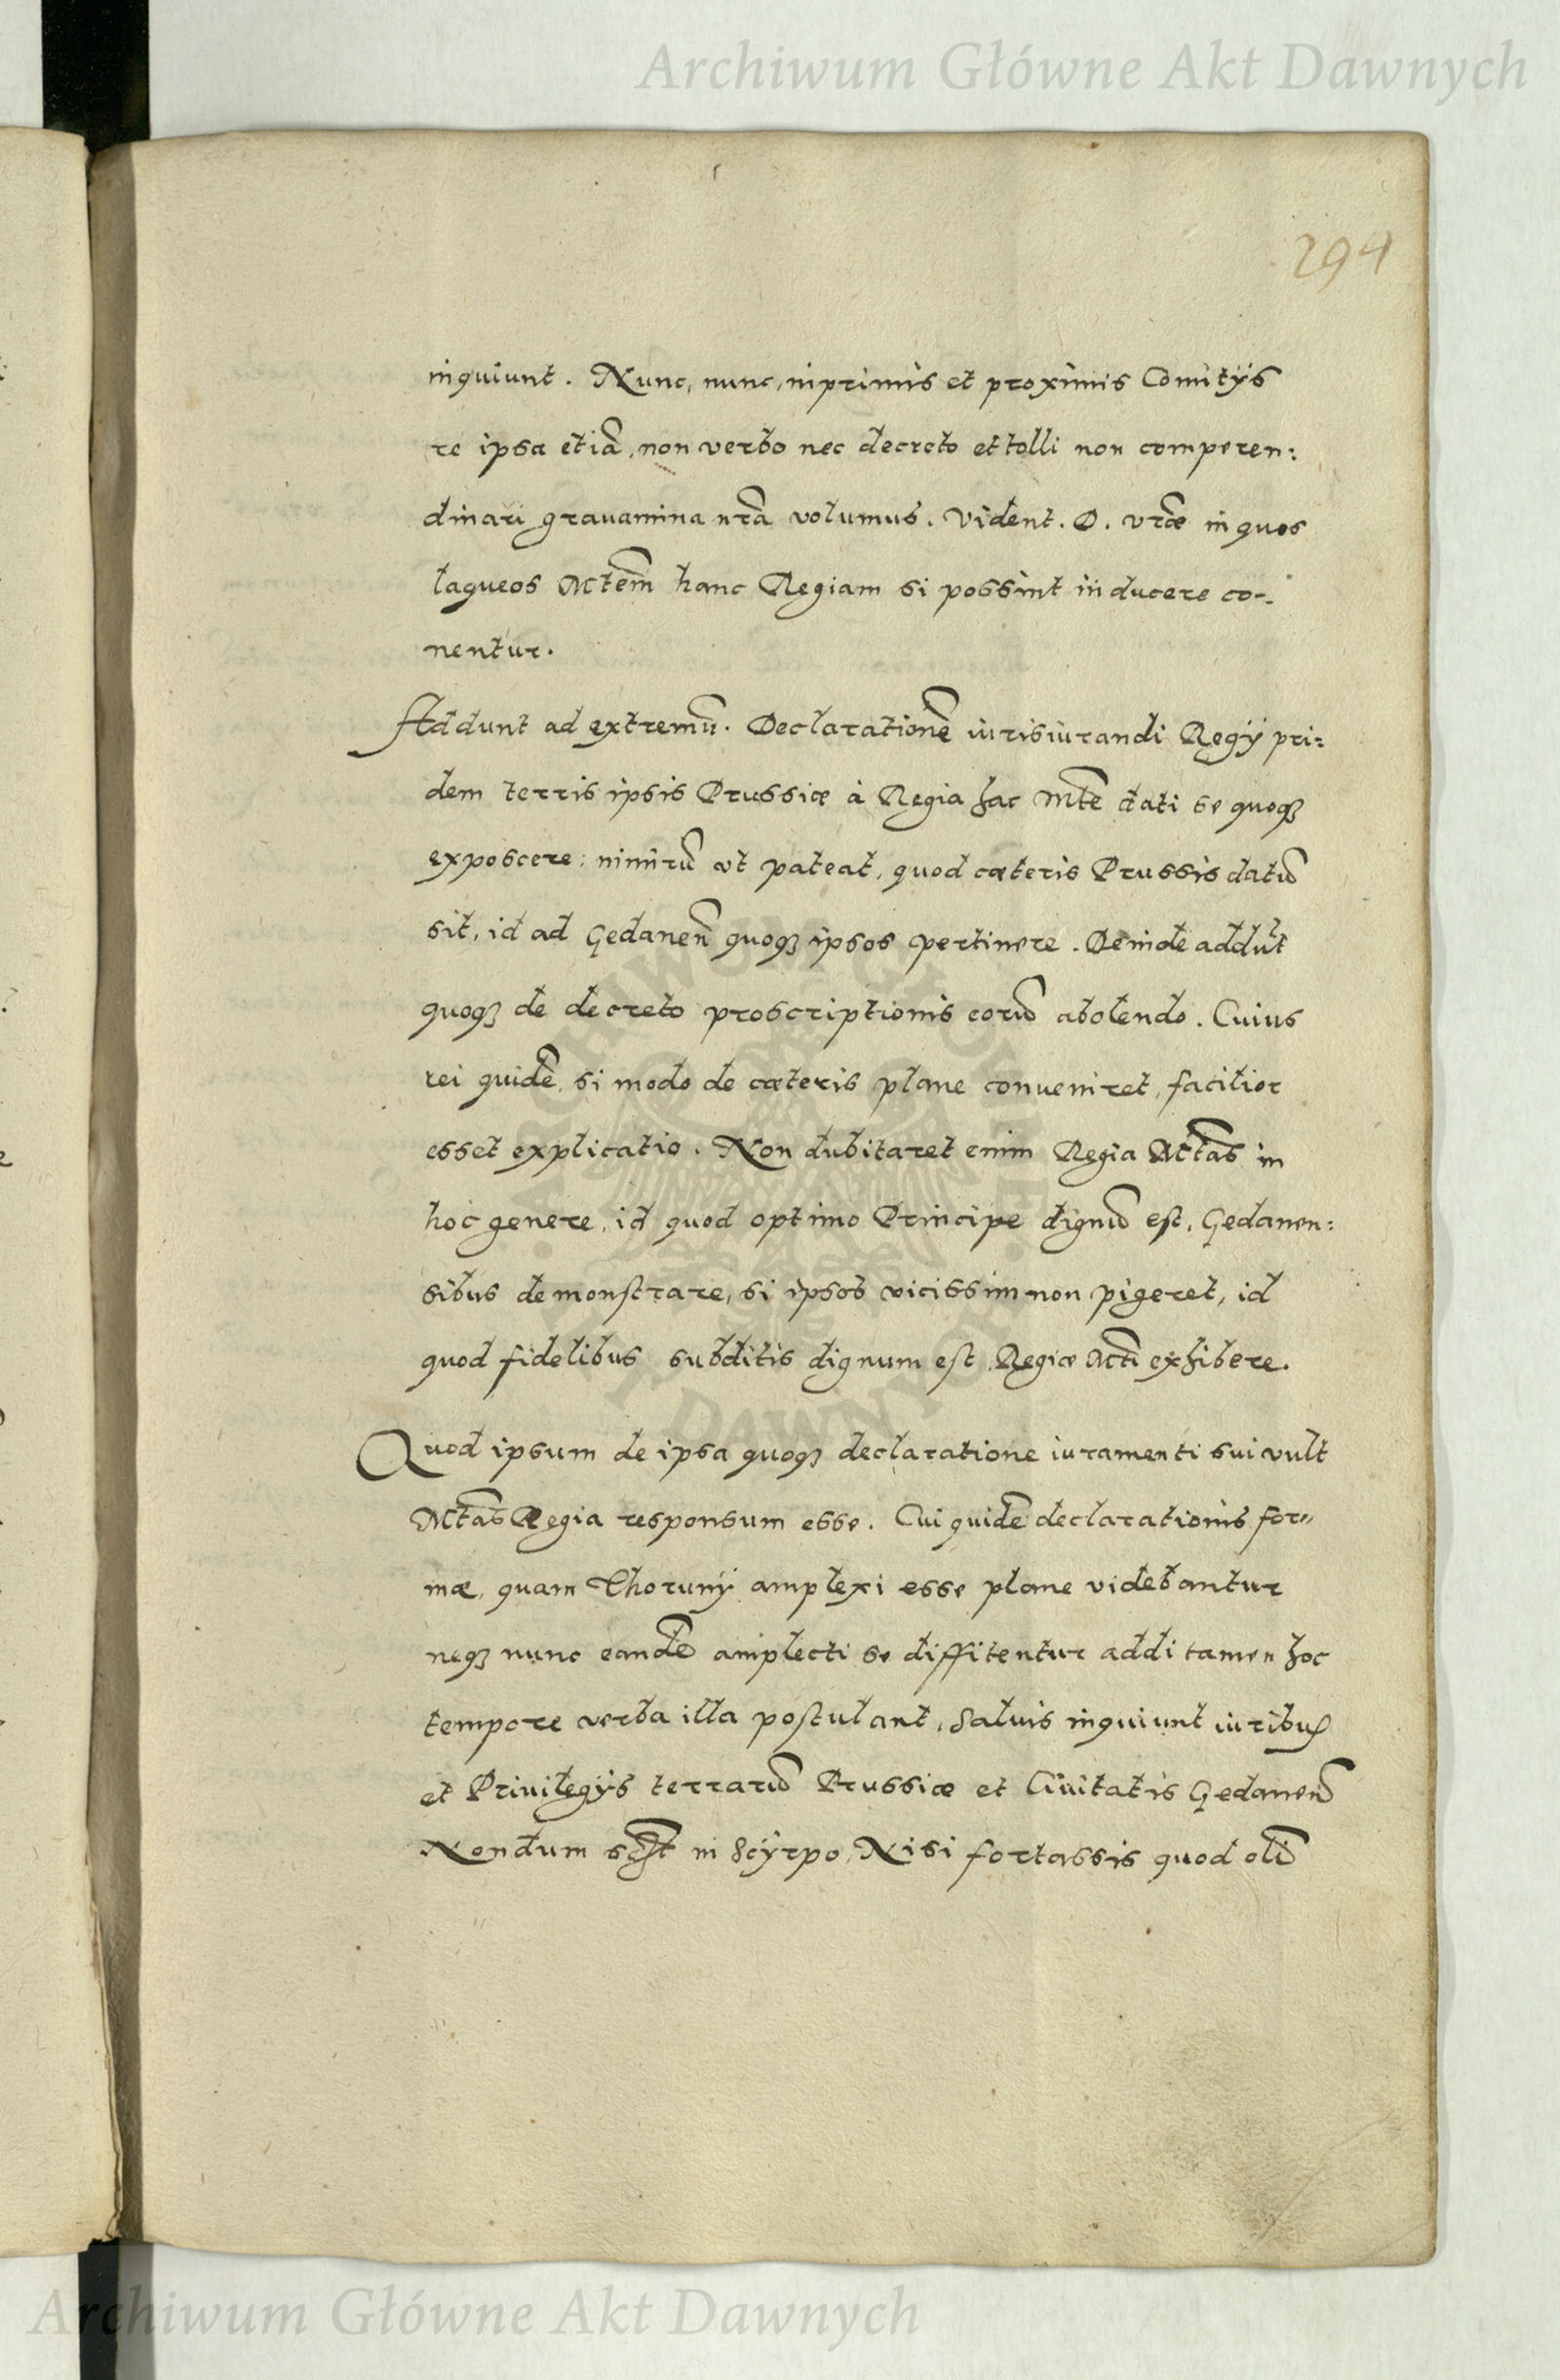 Archiwum Główne Akt Dawnych
294
inquiunt. Nunc, nunc, inprimis et proximis Comitÿs
re ipsa etiã, non verbo nec decreto et tolli non comperen:
dinari grauamina nrã volumus. Vident. D. vrãe in quos
laqueos Mtem̃ hanc Regiam si possint inducere co-
nentur.
Addunt ad extremũ. Declarationẽ iurisiurandi Regÿ pri:
dem terris ipsis Prussiæ à Regia hac Mtẽ dati se quoqꝫ
exposcere: nimirũ vt pateat, quod cæteris Prussis datũ
sit, id ad Gedaneñ quoqꝫ ipsos pertinere. Deinde addũt
quoqꝫ de decreto proscriptionis eorũ abolendo. Cuius
rei quidẽ, si modo de cæteris plane conueniret, facilior
esset explicatio. Non dubitaret enim Regia Mtãs in
hoc genere, id quod optimo Principe dignũ est, Gedanen:
sibus demonstrare, si ipsos vicissim non pigeret, id
quod fidelibus subditis dignum est Regiæ Mti exhibere.
Quod ipsum de ipsa quoqꝫ declaratione iuramenti sui vult
Mtãs Regia responsum esse. Cui quidẽ declarationis for„
mæ, quam Thorunÿ amplexi esse plane videbantur
neqꝫ nunc eandẽ amplecti se diffitentur addi tamen hoc
tempore verba illa postulant, Saluis inquiunt iuribus
et Priuilegÿs terrarũ Prussiæ et Ciuitatis Gedaneñ
Nondum in Scÿrpo, Nisi fortassis quod olĩ
ARCHIWUM GŁÓWNE AKT DAWNYCH
Archiwum Główne Akt Dawnych